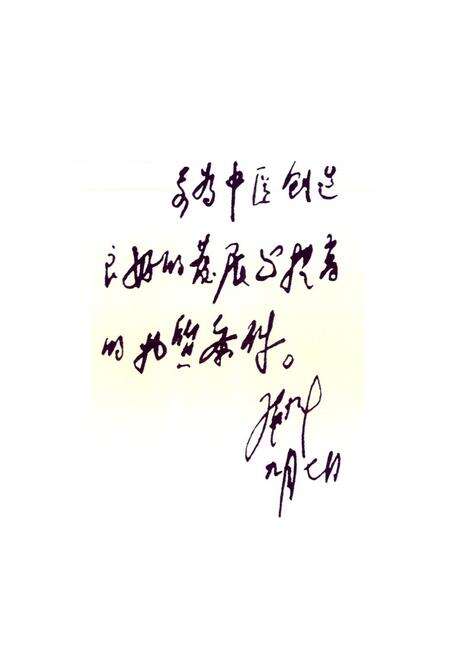 要为中医创造
良好的發展与提高
的物質条件。
邓小平
九月七日